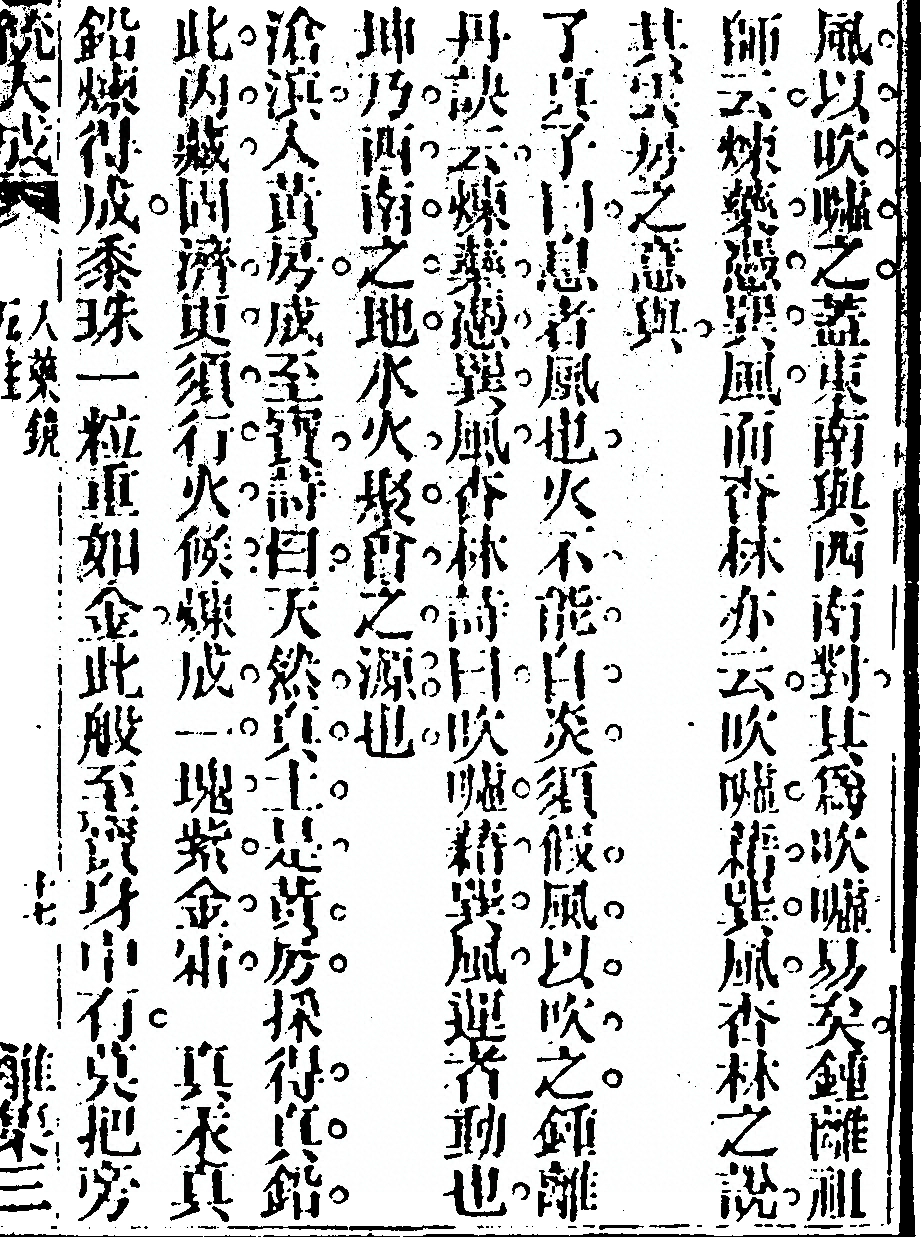 風以吹噓之蓋東南與西南對其為吹噓易矣鍾離祖
師云煉藥憑巽風而杏林亦云吹噓藉巽風杏林之說
其與房之意與
了真子曰息者風也火不能自炎須假風以吹之鍾離
丹訣云煉藥憑巽風杏林詩曰吹噓藉巽風運者動也
坤乃西南之地水火聚會之源也
滄浪人黃房成至寶詩曰天然真土是黃房採得真鉛
此內藏固濟更須行火候煉成一塊紫金霜 真汞真
鉛煉得成黍珠一粒重如金此般至寶身中有莫把旁
統大成
入藥鏡
十七
離集三